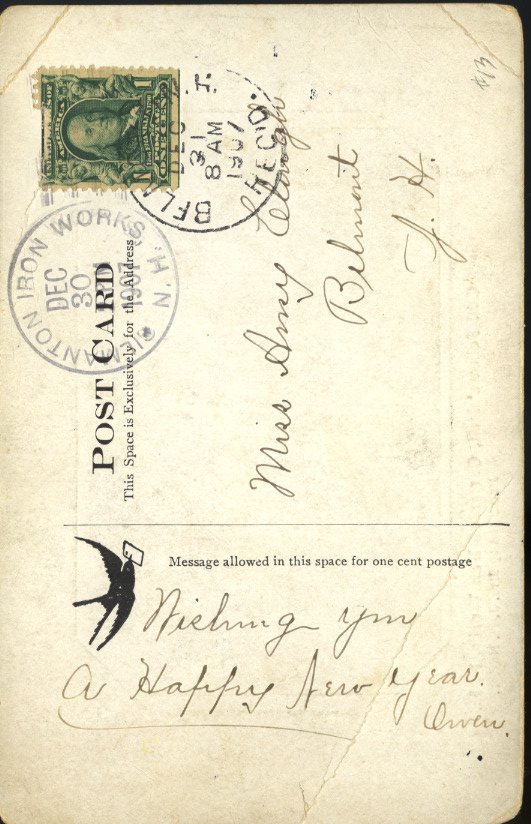 POST CARD
This Space is Exclusively for the Address
GILMANTON IRON WORKS, N.H.
DEC
30
1907
DEC
31
8 AM
1907
REC'D.
#13
Miss Amy Clough
Belmont
N. H.
Message allowed in this space for one cent postage
Wishing you
a Happy New Year.
Owen.